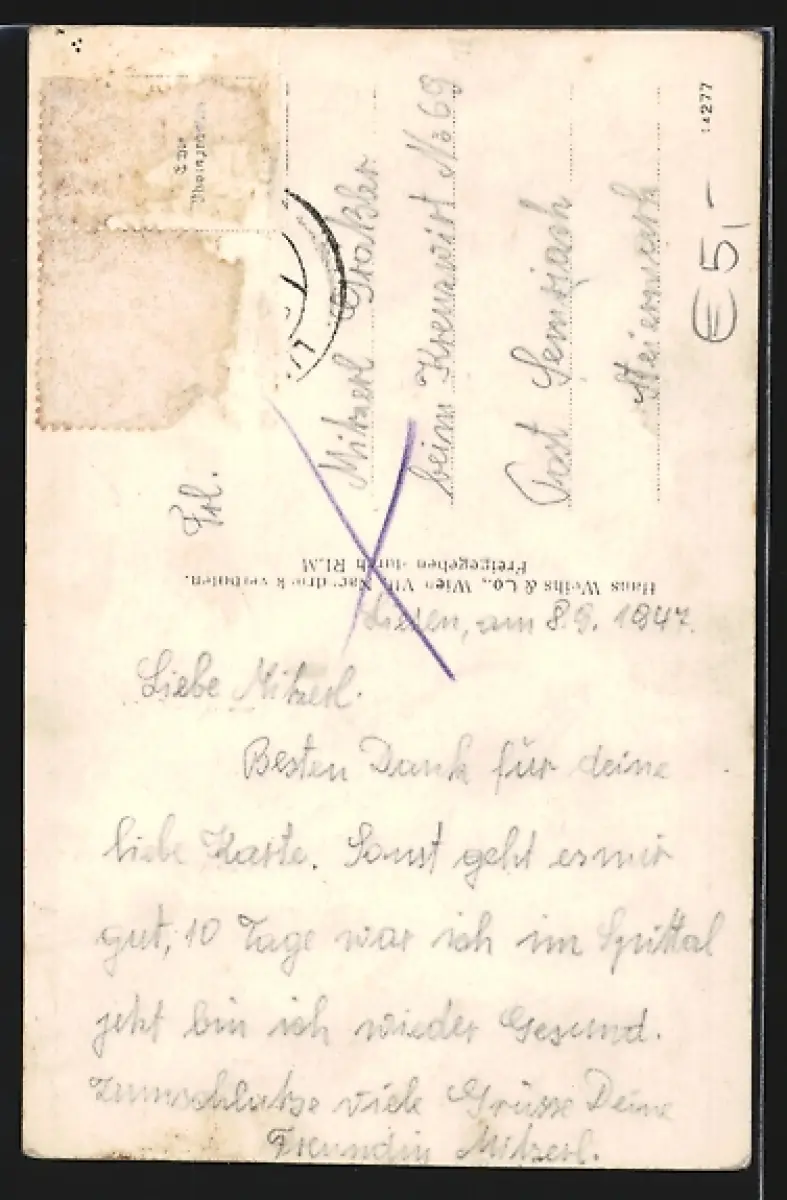 Frl.
Mitzerl Graßler
beim Kreuzwirt No 69
Post Semriach
Steiermark
14277
€ 5,-
Hans Weihs & Co., Wien VII. Nachdruck verboten.
Freigegeben durch RLM
Liezen, am 8.9. 1947.
Liebe Mitzerl.
Besten Dank für deine
liebe Karte. Sonst geht es mir
gut, 10 Tage war ich im Spittal
jetzt bin ich wieder Gesund.
Zumschlutze viele Grüsse Deine
Freundin Mitzerl.